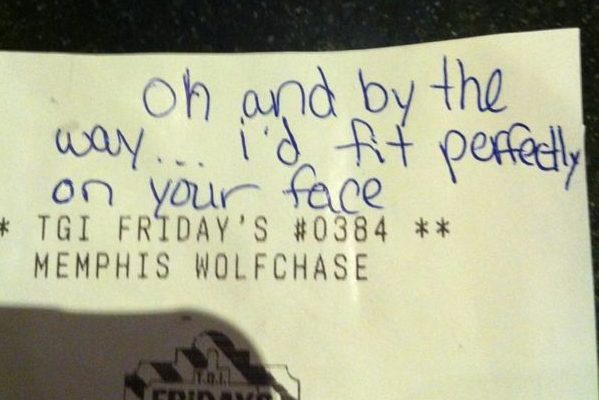 Oh and by the
way... i'd fit perfectly
on your face
* TGI FRIDAY'S #0384 **
MEMPHIS WOLFCHASE
T.G.I.
FRIDAYS